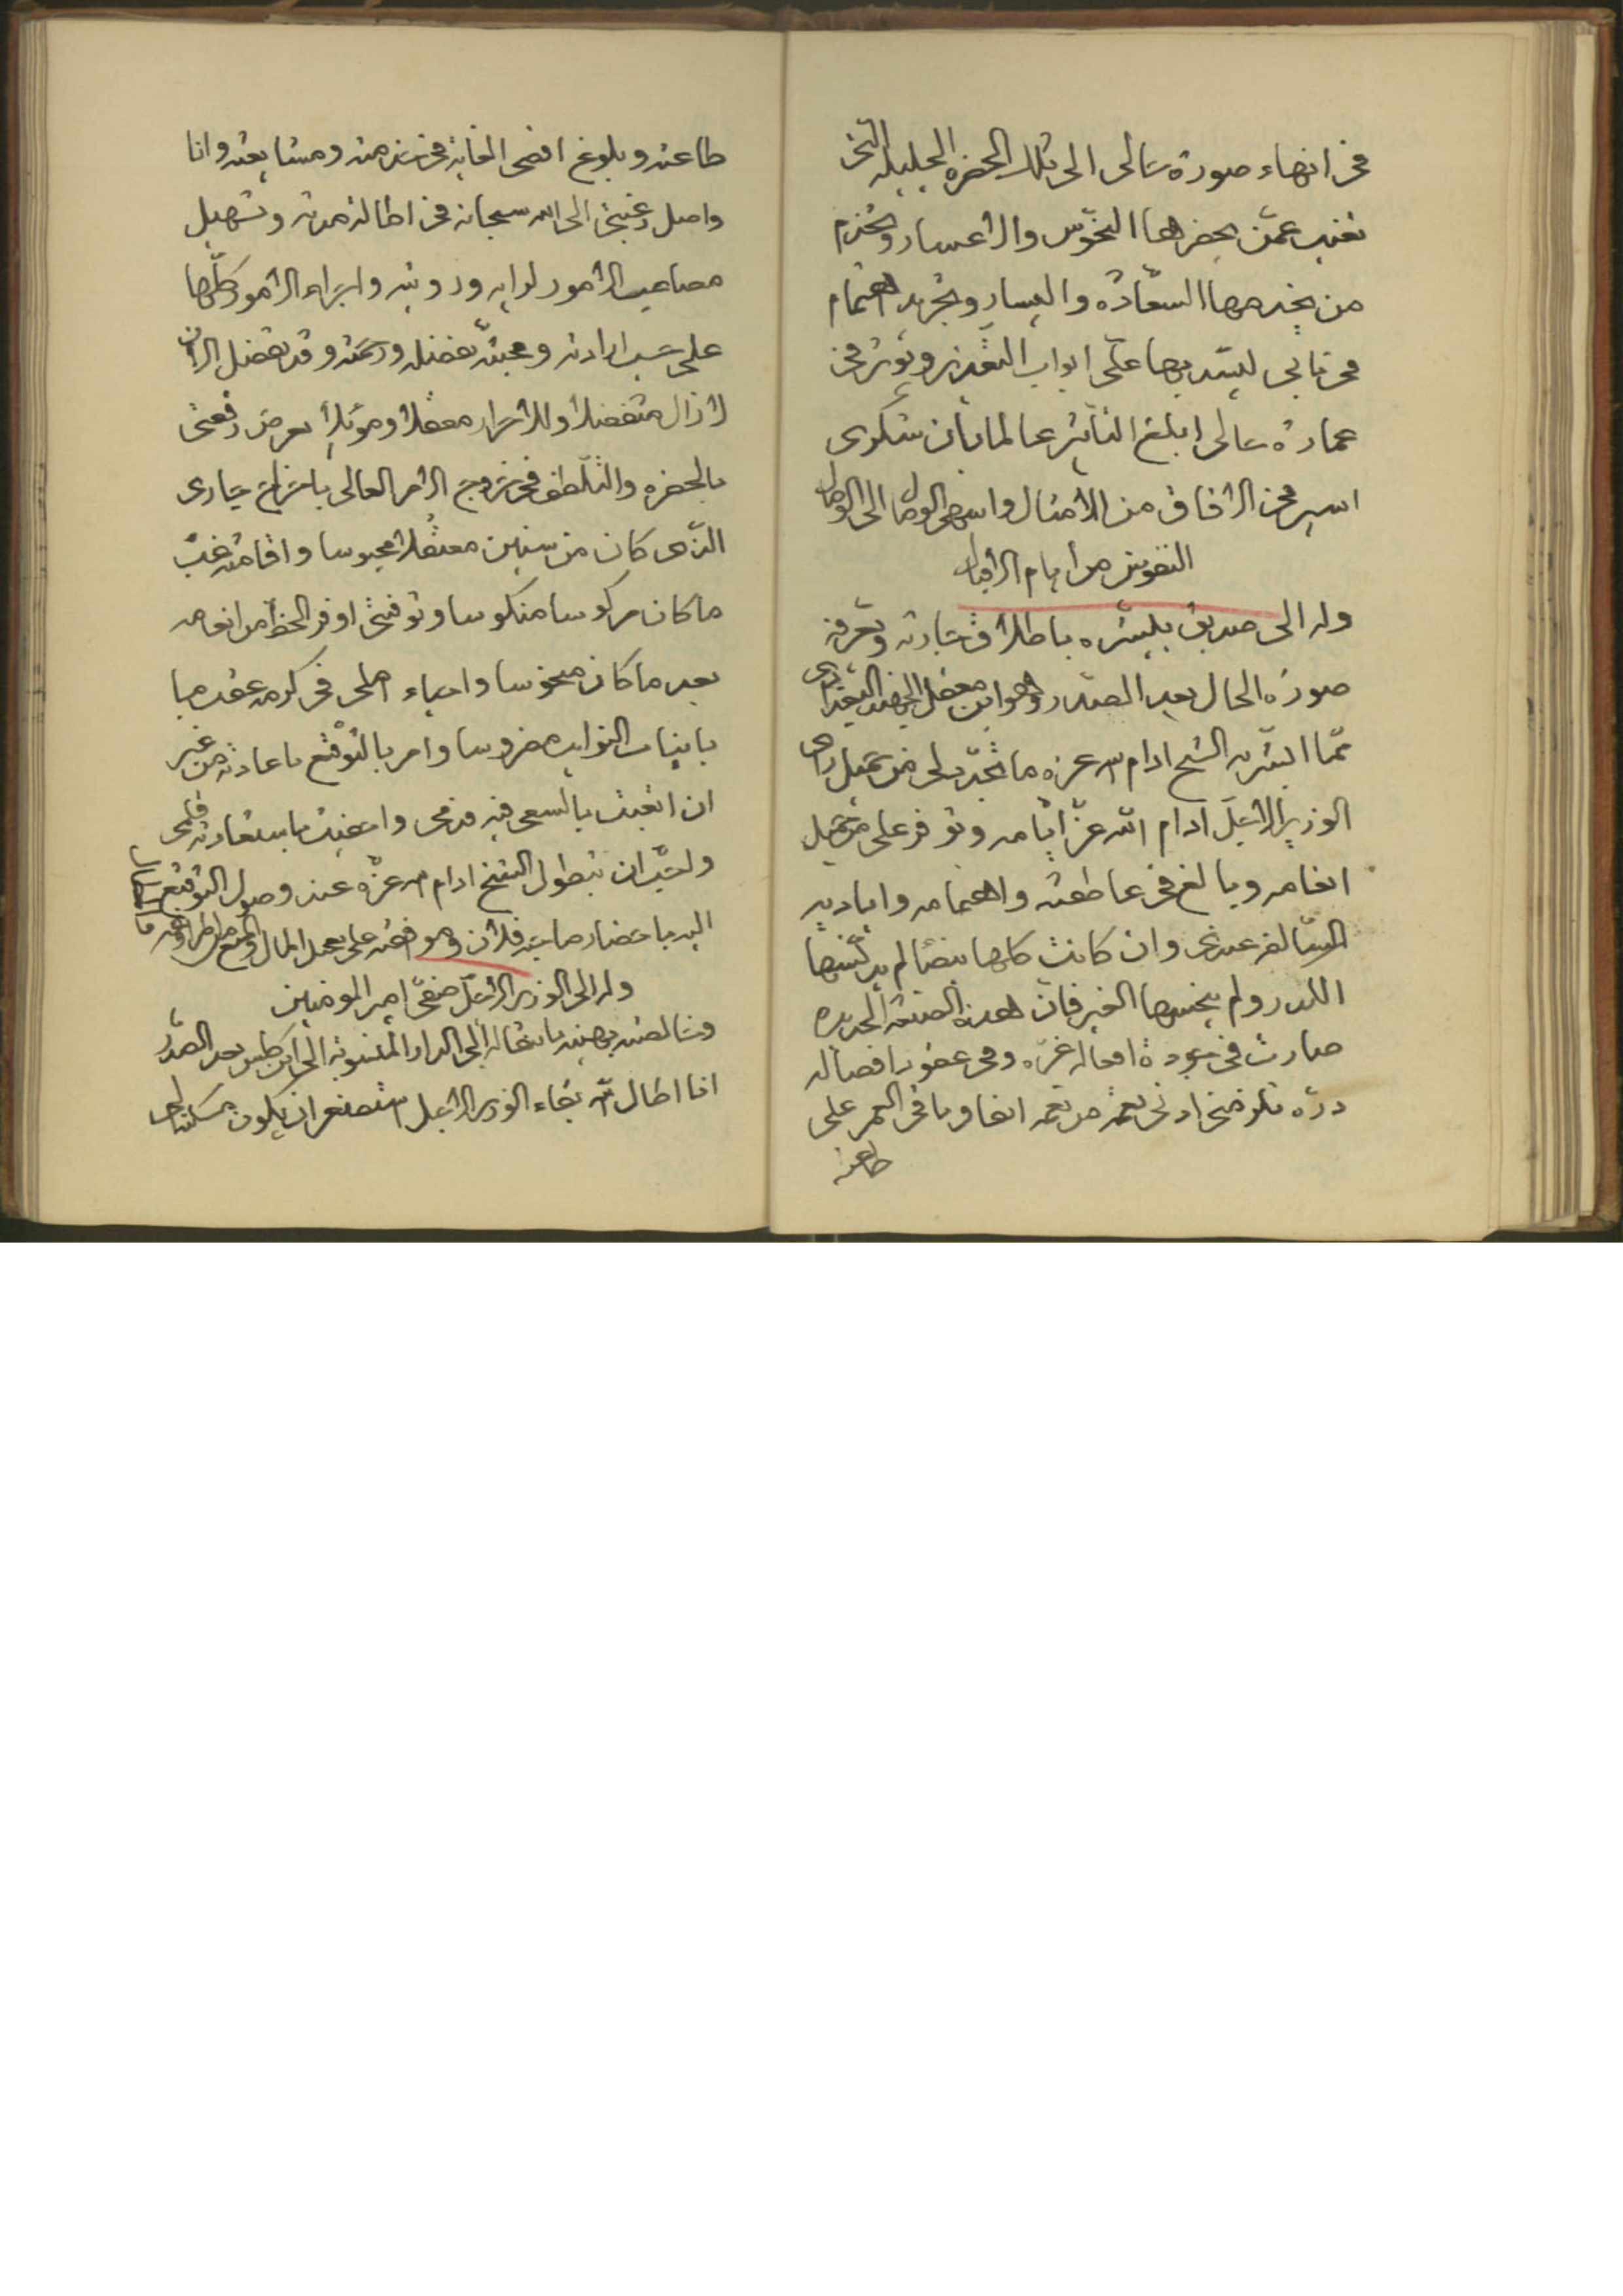 في انهاء صورة حالى الى تلك الحضرة الجليلة التى
تغيب عمّن يحضرها النحوس والاعسار ويخدم
من يخدمها السعادة واليسار وتجريد اهتمام
فى بابى ليسد بها علىّ ابواب التقدير ويوثر فى
عمارة حالى ابلغ التأثير عالما بان شكرى
اسير فى الافاق من الامثال واشهى الوصال الى
النفوس من أيام الاقبال
وله الى صديق يبشره باطلاق جاريه وتعرفه
صورة الحال بعد الصدر وهو ابن معقل
ممّا ابشر به الشيخ ادام الله عزه ما تجدد لى من جميل راى
الوزير الاجلّ ادام الله عزّ ايامه وتوفر على من جميل
انعامه وبالغ فى عاطفته واهتمامه واياديه
السالفة عندى وان كانت كلها بيضا لم يدنسها
الكدر ولم يخسها الغير فان هذه الصنيعة الجديدة
صارت فى جبهة افعاله غرّه وفى عقود افضاله
درّه تلزمنى ادنى نعمة من نعمه انفاق باقى العمر على
طاعته
طاعته وبلوغ اقصى الغاية فى خدمته ومشايعته وانا
واصل رغبتى الى الله سبحانه فى اطالة مدته وتسهيل
مصاعب الامور لرايه ورويته واجراء الامور كلّها
على حسب ارادته ومحبته بفضله ورحمته وقد تفضل الان
لا زال متفضلا وللاحرار معقلا وموئلا بعرض رقعتى
بالحضرة والتلطف فى خروج الامر العالى باخراج جارى
الذى كان من سنين معتقلا محبوسا واقامته غبّ
ما كان مركوسا منكوسا وتوفيتى اوفر الحظ من انعامه
بعد ما كان منحوسا واحياء املى فى كرمه عقد ما
بانياب النوايب مضروسا وامر بالتوقيع باعادته من غير
ان اتعبت بالسعى فيه قدمى واحفيت باستعادته قلمى
واحبّ ان يتطول الشيخ ادام الله عزّه عند وصول التوقيع
اليه باحضار صاحبه فلان وموافقته على تعجيل المال
وله الى الوزير الاجلّ صفىّ امير المؤمنين
وخالصته يهنيه بانتقاله الى الدار المنسوبة الى بعد الصدر
انا اطال الله بقاء الوزير الاجل استصغر ان يكون